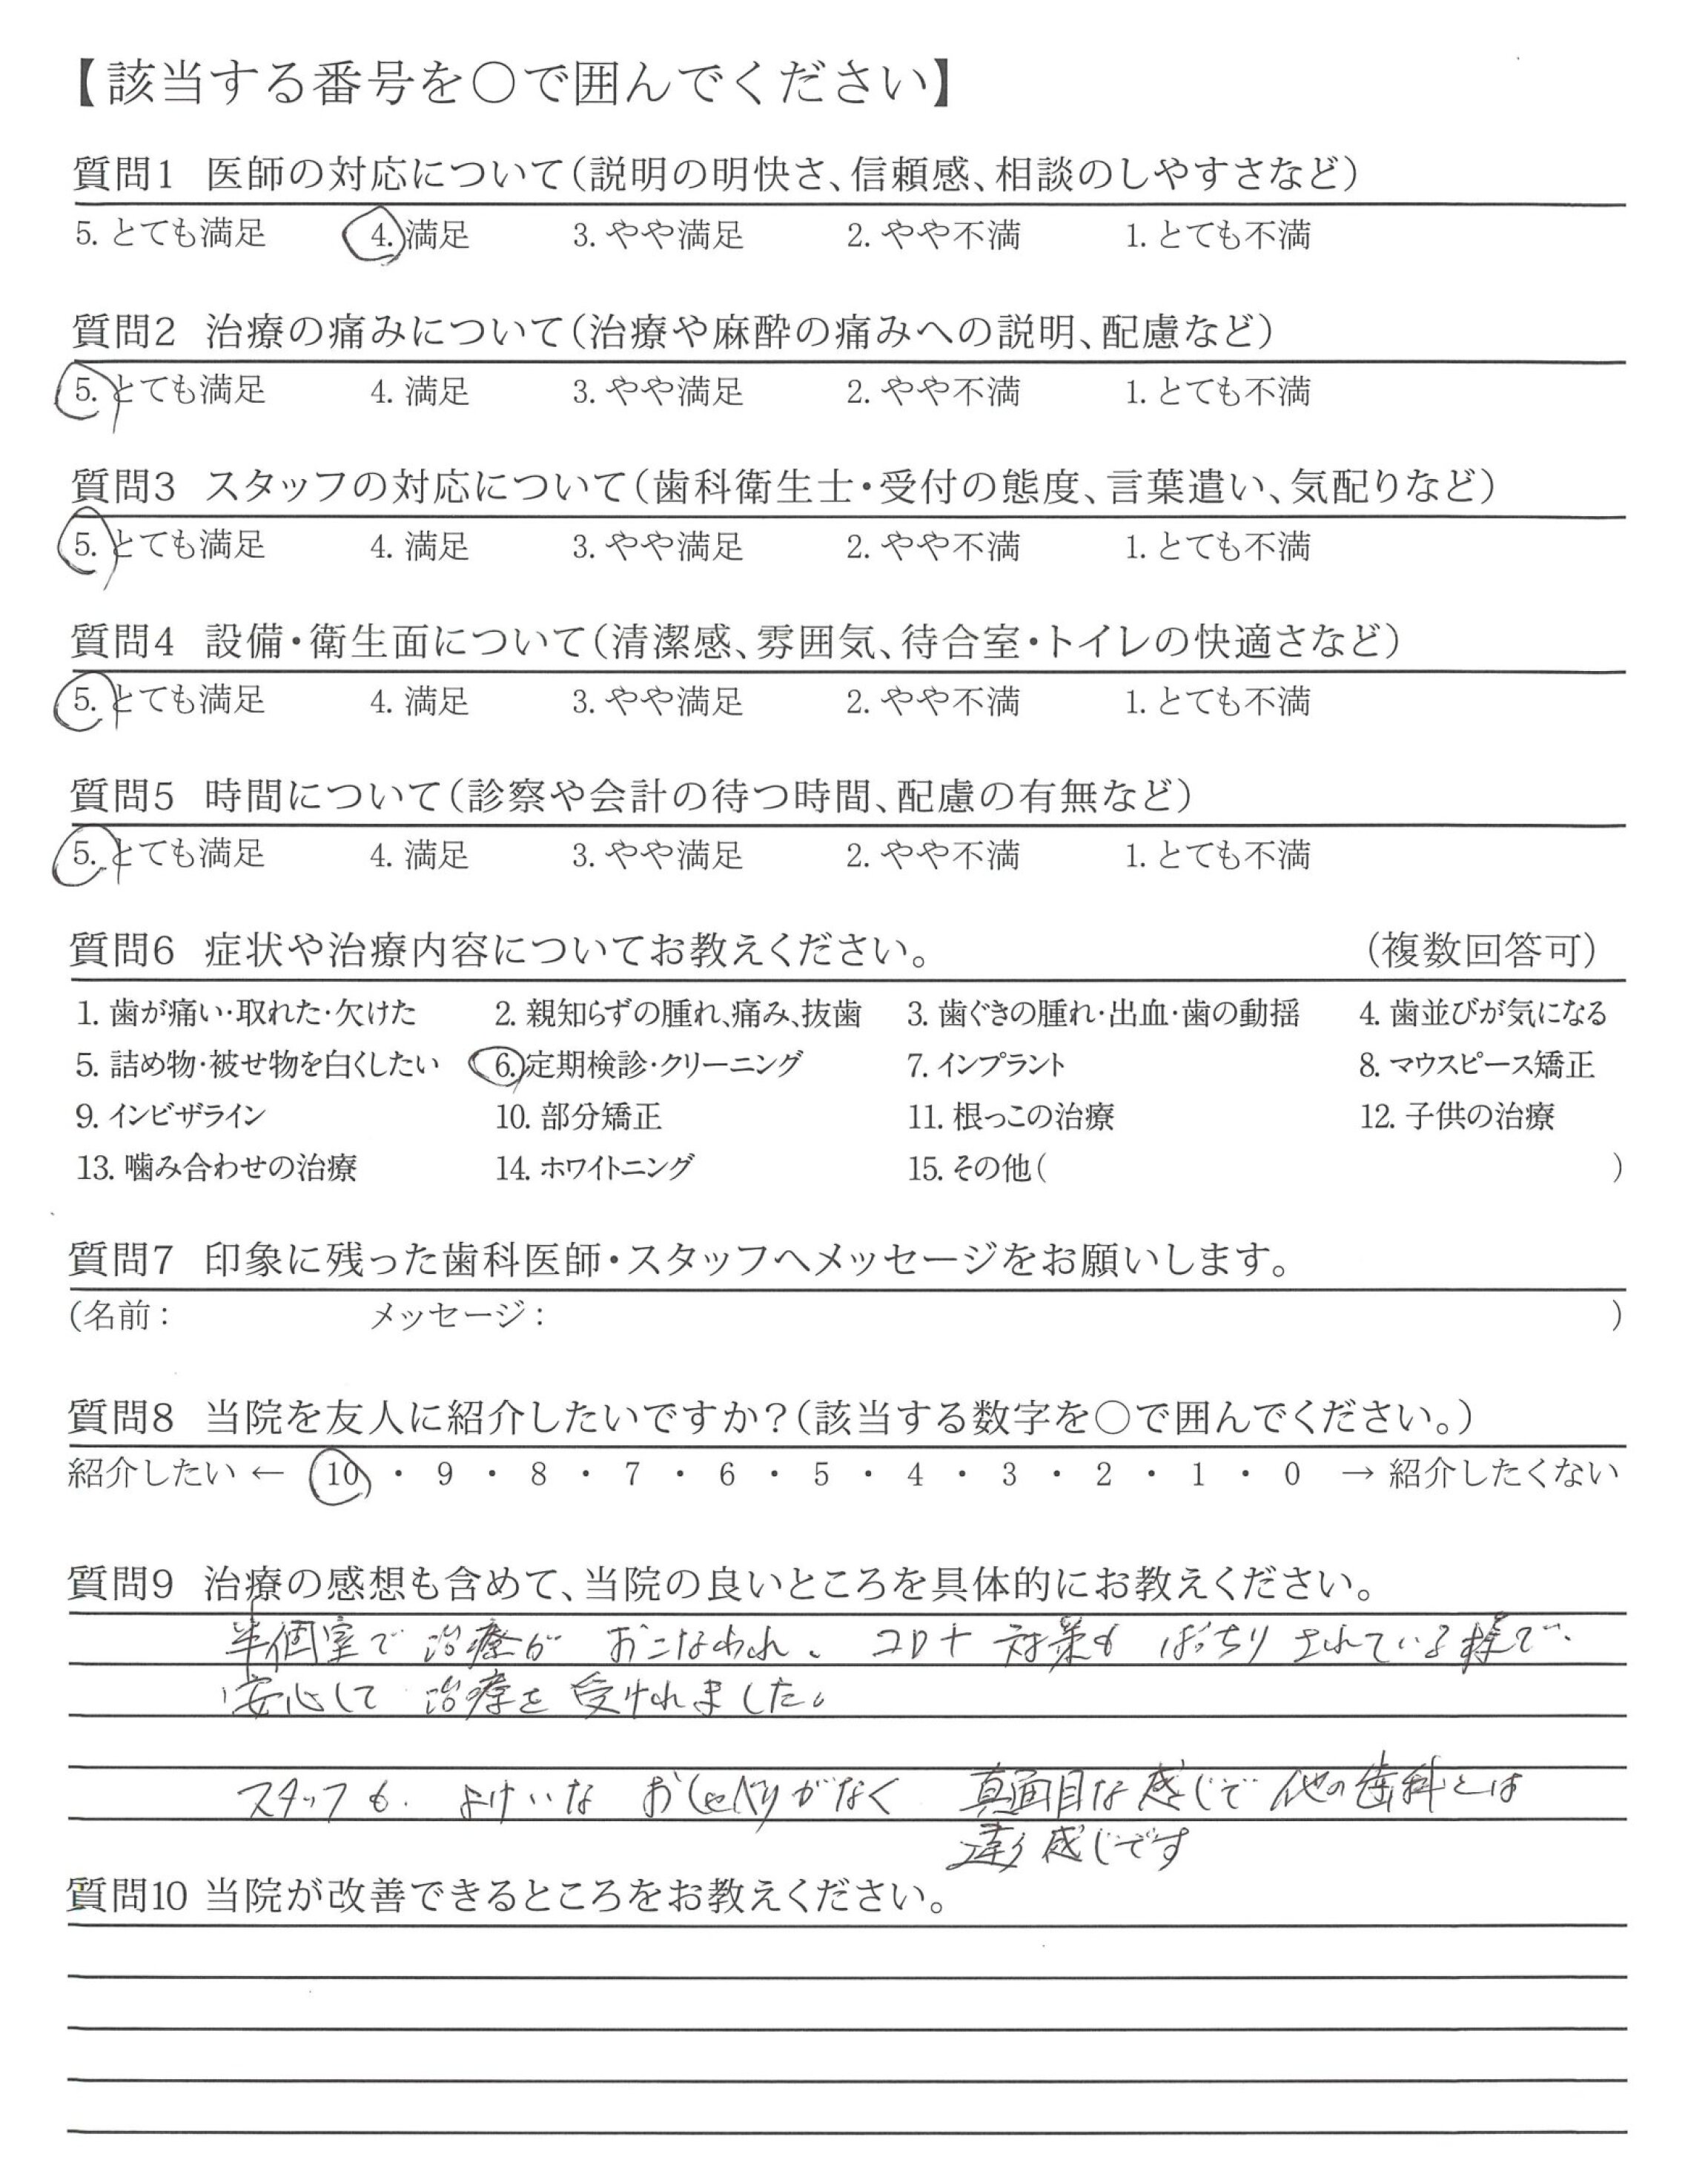 【該当する番号を○で囲んでください】
質問1 医師の対応について(説明の明快さ、信頼感、相談のしやすさなど)
5. とても満足 4. 満足 3. やや満足 2. やや不満 1. とても不満
質問2 治療の痛みについて(治療や麻酔の痛みへの説明、配慮など)
5. とても満足 4. 満足 3. やや満足 2. やや不満 1. とても不満
質問3 スタッフの対応について(歯科衛生士・受付の態度、言葉遣い、気配りなど)
5. とても満足 4. 満足 3. やや満足 2. やや不満 1. とても不満
質問4 設備・衛生面について(清潔感、雰囲気、待合室・トイレの快適さなど)
5. とても満足 4. 満足 3. やや満足 2. やや不満 1. とても不満
質問5 時間について(診察や会計の待つ時間、配慮の有無など)
5. とても満足 4. 満足 3. やや満足 2. やや不満 1. とても不満
質問6 症状や治療内容についてお教えください。 (複数回答可)
1. 歯が痛い・取れた・欠けた 2. 親知らずの腫れ、痛み、抜歯 3. 歯ぐきの腫れ・出血・歯の動揺 4. 歯並びが気になる
5. 詰め物・被せ物を白くしたい 6. 定期検診・クリーニング 7. インプラント 8. マウスピース矯正
9. インビザライン 10. 部分矯正 11. 根っこの治療 12. 子供の治療
13. 噛み合わせの治療 14. ホワイトニング 15. その他( )
質問7 印象に残った歯科医師・スタッフへメッセージをお願いします。
(名前: メッセージ: )
質問8 当院を友人に紹介したいですか?(該当する数字を○で囲んでください。)
紹介したい ← 10 ・ 9 ・ 8 ・ 7 ・ 6 ・ 5 ・ 4 ・ 3 ・ 2 ・ 1 ・ 0 → 紹介したくない
質問9 治療の感想も含めて、当院の良いところを具体的にお教えください。
半個室で治療がおこなわれ、コロナ対策もばっちりされている様で、
安心して治療を受けれました。
スタッフも、よけいなおしゃべりがなく 真面目な感じで他の歯科とは
違う感じです
質問10 当院が改善できるところをお教えください。